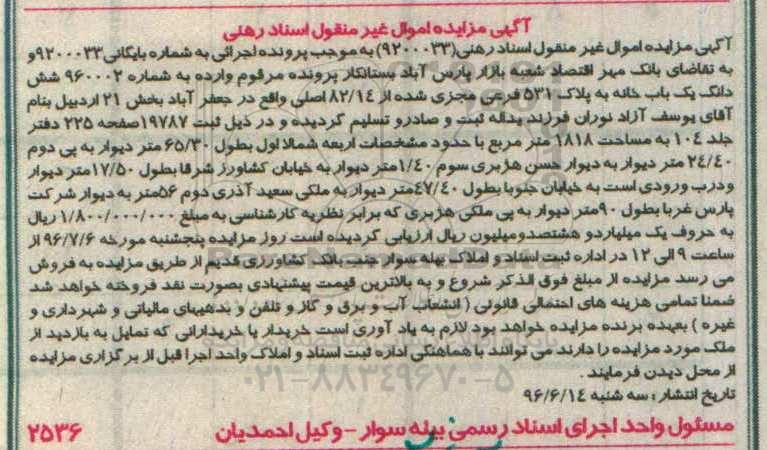 آگهی مزایده اموال غیر منقول اسناد رهنی
آگهی مزایده اموال غیر منقول اسناد رهنی(۹۲۰۰۰۳۳) به موجب پرونده اجرائی به شماره بایگانی۹۲۰۰۰۳۳و
به تقاضای بانک مهر اقتصاد شعبه بازار پارس آباد بستانکار پرونده مرقوم وارده به شماره ۹۶۰۰۰۲ شش
دانگ یک باب خانه به پلاک ۵۳۱ فرعی مجزی شده از ۸۲/۱۴ اصلی واقع در جعفر آباد بخش ۲۱ اردبیل بنام
آقای یوسف آزاد نوران فرزند یداله ثبت و صادرو تسلیم گردیده و در ذیل ثبت ۱۹۷۸۷صفحه ۲۲۵ دفتر
جلد ۱۰۴ به مساحت ۱۸۱۸ متر مربع با حدود مشخصات اربعه شمالا اول بطول ۶۵/۳۰متر دیوار به پی دوم
۲۴/۴۰ متر دیوار به دیوار حسن هژبری سوم ۱/۴۰متر دیوار به خیابان کشاورز شرقا بطول ۱۷/۵۰متر دیوار
ودرب ورودی است به خیابان جنوبا بطول ۴۷/۴۰متر دیوار به ملکی سعید آذری دوم ۵۶متر به دیوار شرکت
پارس غربا بطول ۹۰متر دیوار به پی ملکی هژبری که برابر نظریه کارشناسی به مبلغ ۱/۸۰۰/۰۰۰/۰۰۰ ریال
به حروف یک میلیاردو هشتصدومیلیون ریال ارزیابی گردیده است روز مزایده پنجشنبه مورخه ۹۶/۷/۶ از
ساعت ۹ الی ۱۲ در اداره ثبت اسناد و املاک بیله سوار جنب بانک کشاورزی قدیم از طریق مزایده به فروش
می رسد مزایده از مبلغ فوق الذکر شروع و به بالاترین قیمت پیشنهادی بصورت نقد فروخته خواهد شد
ضمنا تمامی هزینه های احتمالی قانونی ( انشعاب آب و برق و گاز و تلفن و بدهیهای مالیاتی و شهرداری و
غیره ) بعهده برنده مزایده خواهد بود لازم به یاد آوری است خریدار یا خریدارانی که تمایل به بازدید از
ملک مورد مزایده را دارند می توانند با هماهنگی اداره ثبت اسناد و املاک واحد اجرا قبل از برگزاری مزایده
از محل دیدن فرمایند .
۰۲۱-۸۸۳۴۹۶۷۰-۵
تاریخ انتشار : سه شنبه ۹۶/۶/۱۴
مسئول واحد اجرای اسناد رسمی بیله سوار -وکیل احمدیان
۲۵۳۶